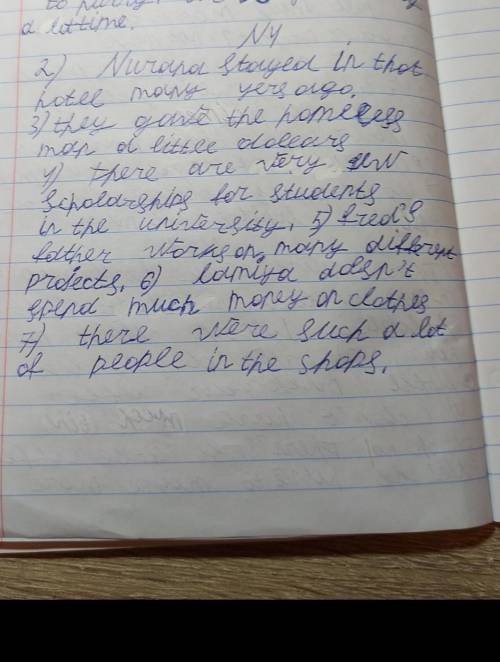 a lot time.
N4
2) Nurana stayed in that
hotel many yers ago.
3) they gave the homeless
man a little dollars
4) there are very
scholarships for students
in the university. 5) Fred's
father works on many different
projects. 6) Lamiya doesn't
spend much money on clothes
7) there were such a lot
of people in the shops.